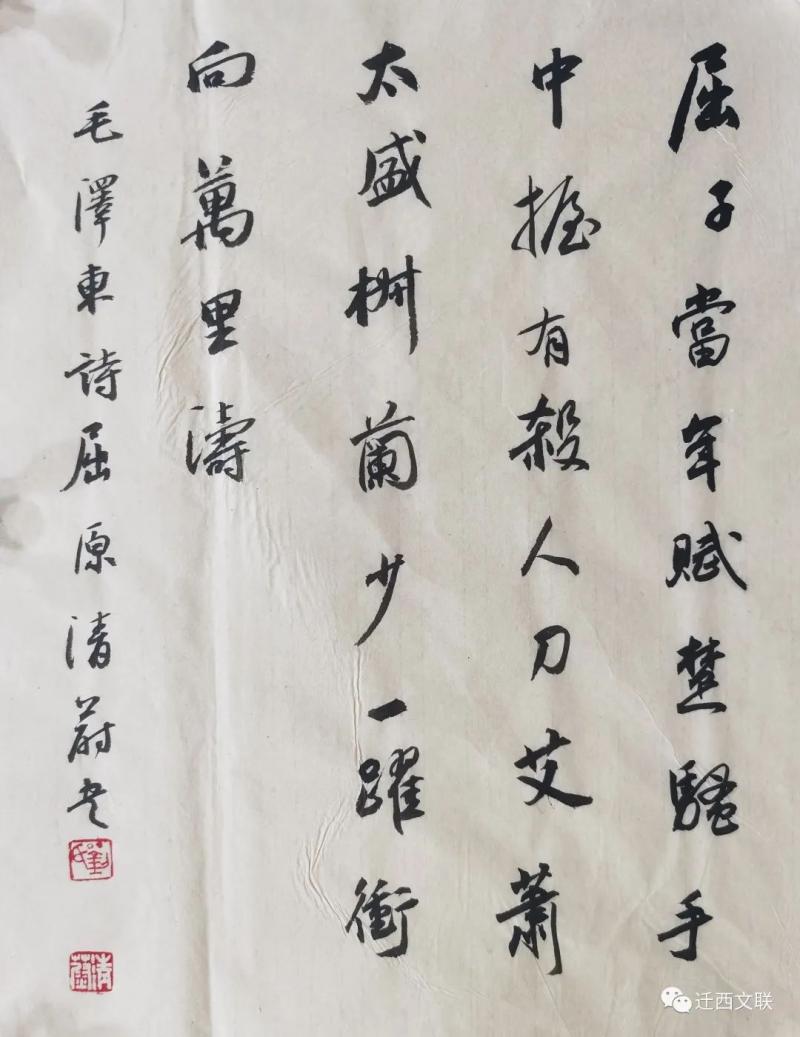 屈子當年賦楚騷手
中握有殺人刀艾蕭
太盛椒蘭少一躍衝
向萬里濤
毛澤東詩屈原清蔚書
迁西文联